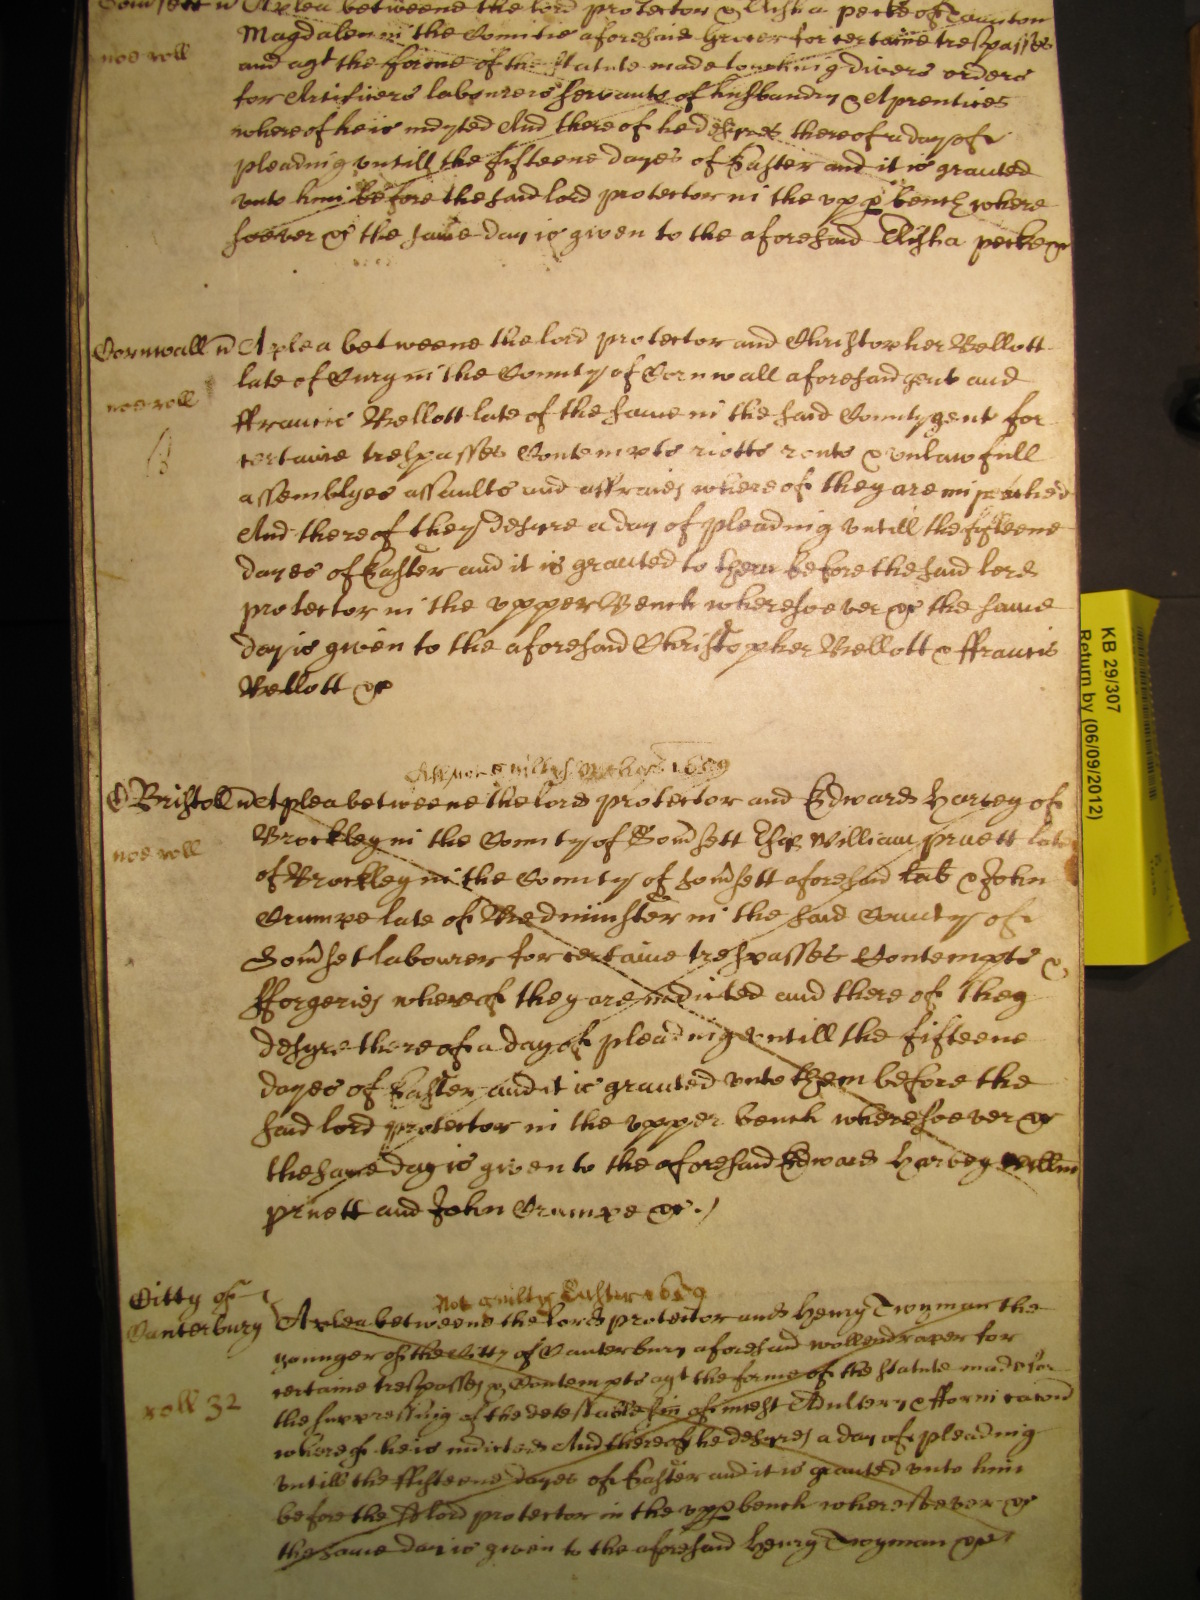 Somsett A plea betweene the lord protector & Elisha pecke of Taunton
Magdalen in the Comitie aforesaid Grocer for certaine trespasses
noe roll
and agt the forme of the statute made touching divers orders
for Artificers labourers servants of husbandry & Aprentices
whereof he is indyted And thereof he desyres thereof a day of
pleading untill the fifteene dayes of Easter and it is graunted
unto him before the said lord protector in the upp bench where
soever &c the same day is given to the aforesaid Elisha pecke &c
Cornwall A plea betweene the lord protector and Christopher Bellott
late of in the County of Cornwall aforesaid gent and
noe roll
ffrancis Bellott late of the same in the said County gent for
certaine trespasses Contempts riotts routs & unlawfull
assemblyes assaults and affraies whereof they are impeached
And thereof they desyre a day of pleading untill the fifteene
dayes of Easter and it is graunted to them before the said lord
protector in the upper Bench wheresoever &c the same
day is given to the aforesaid Christopher Bellott & ffrancis
Bellott &c
not guilty 1659
Bristoll A plea betweene the lord protector and Edward Harvey of
Brockley in the County of Somsett Esqr William pruett late
noe roll
of Brockley in the County of Somsett aforesaid lab & John
Crumpe late of Bedminster in the said County of
Somset labourer for certaine trespasses Contempts &
fforgeries whereof they are indicted and thereof they
desyre thereof a day of pleading untill the fifteene
dayes of Easter and it is graunted unto them before the
said lord protector in the upper bench wheresoever &c
the same day is given to the aforesaid Edward Harvey Willm
pruett and John Crumpe &c
Not guilty Easter 1659
Citty of
Canterbury
A plea betweene the lord protector and Henry Twyman the
younger of the Citty of Canterbury aforesaid wollendraper for
certaine trespasses & Contempts agt the forme of the statute made for
roll 32
the suppressing of the detestable sin of incest Adultery & ffornicacon
whereof he is indicted And thereof he desyres a day of pleading
untill the ffifteene dayes of Easter and it is graunted unto him
before the sd lord protector in the upp bench wheresoever &c
the same day is given to the aforesaid Henry Twyman &c
KB 29/307
Return by (06/09/2012)